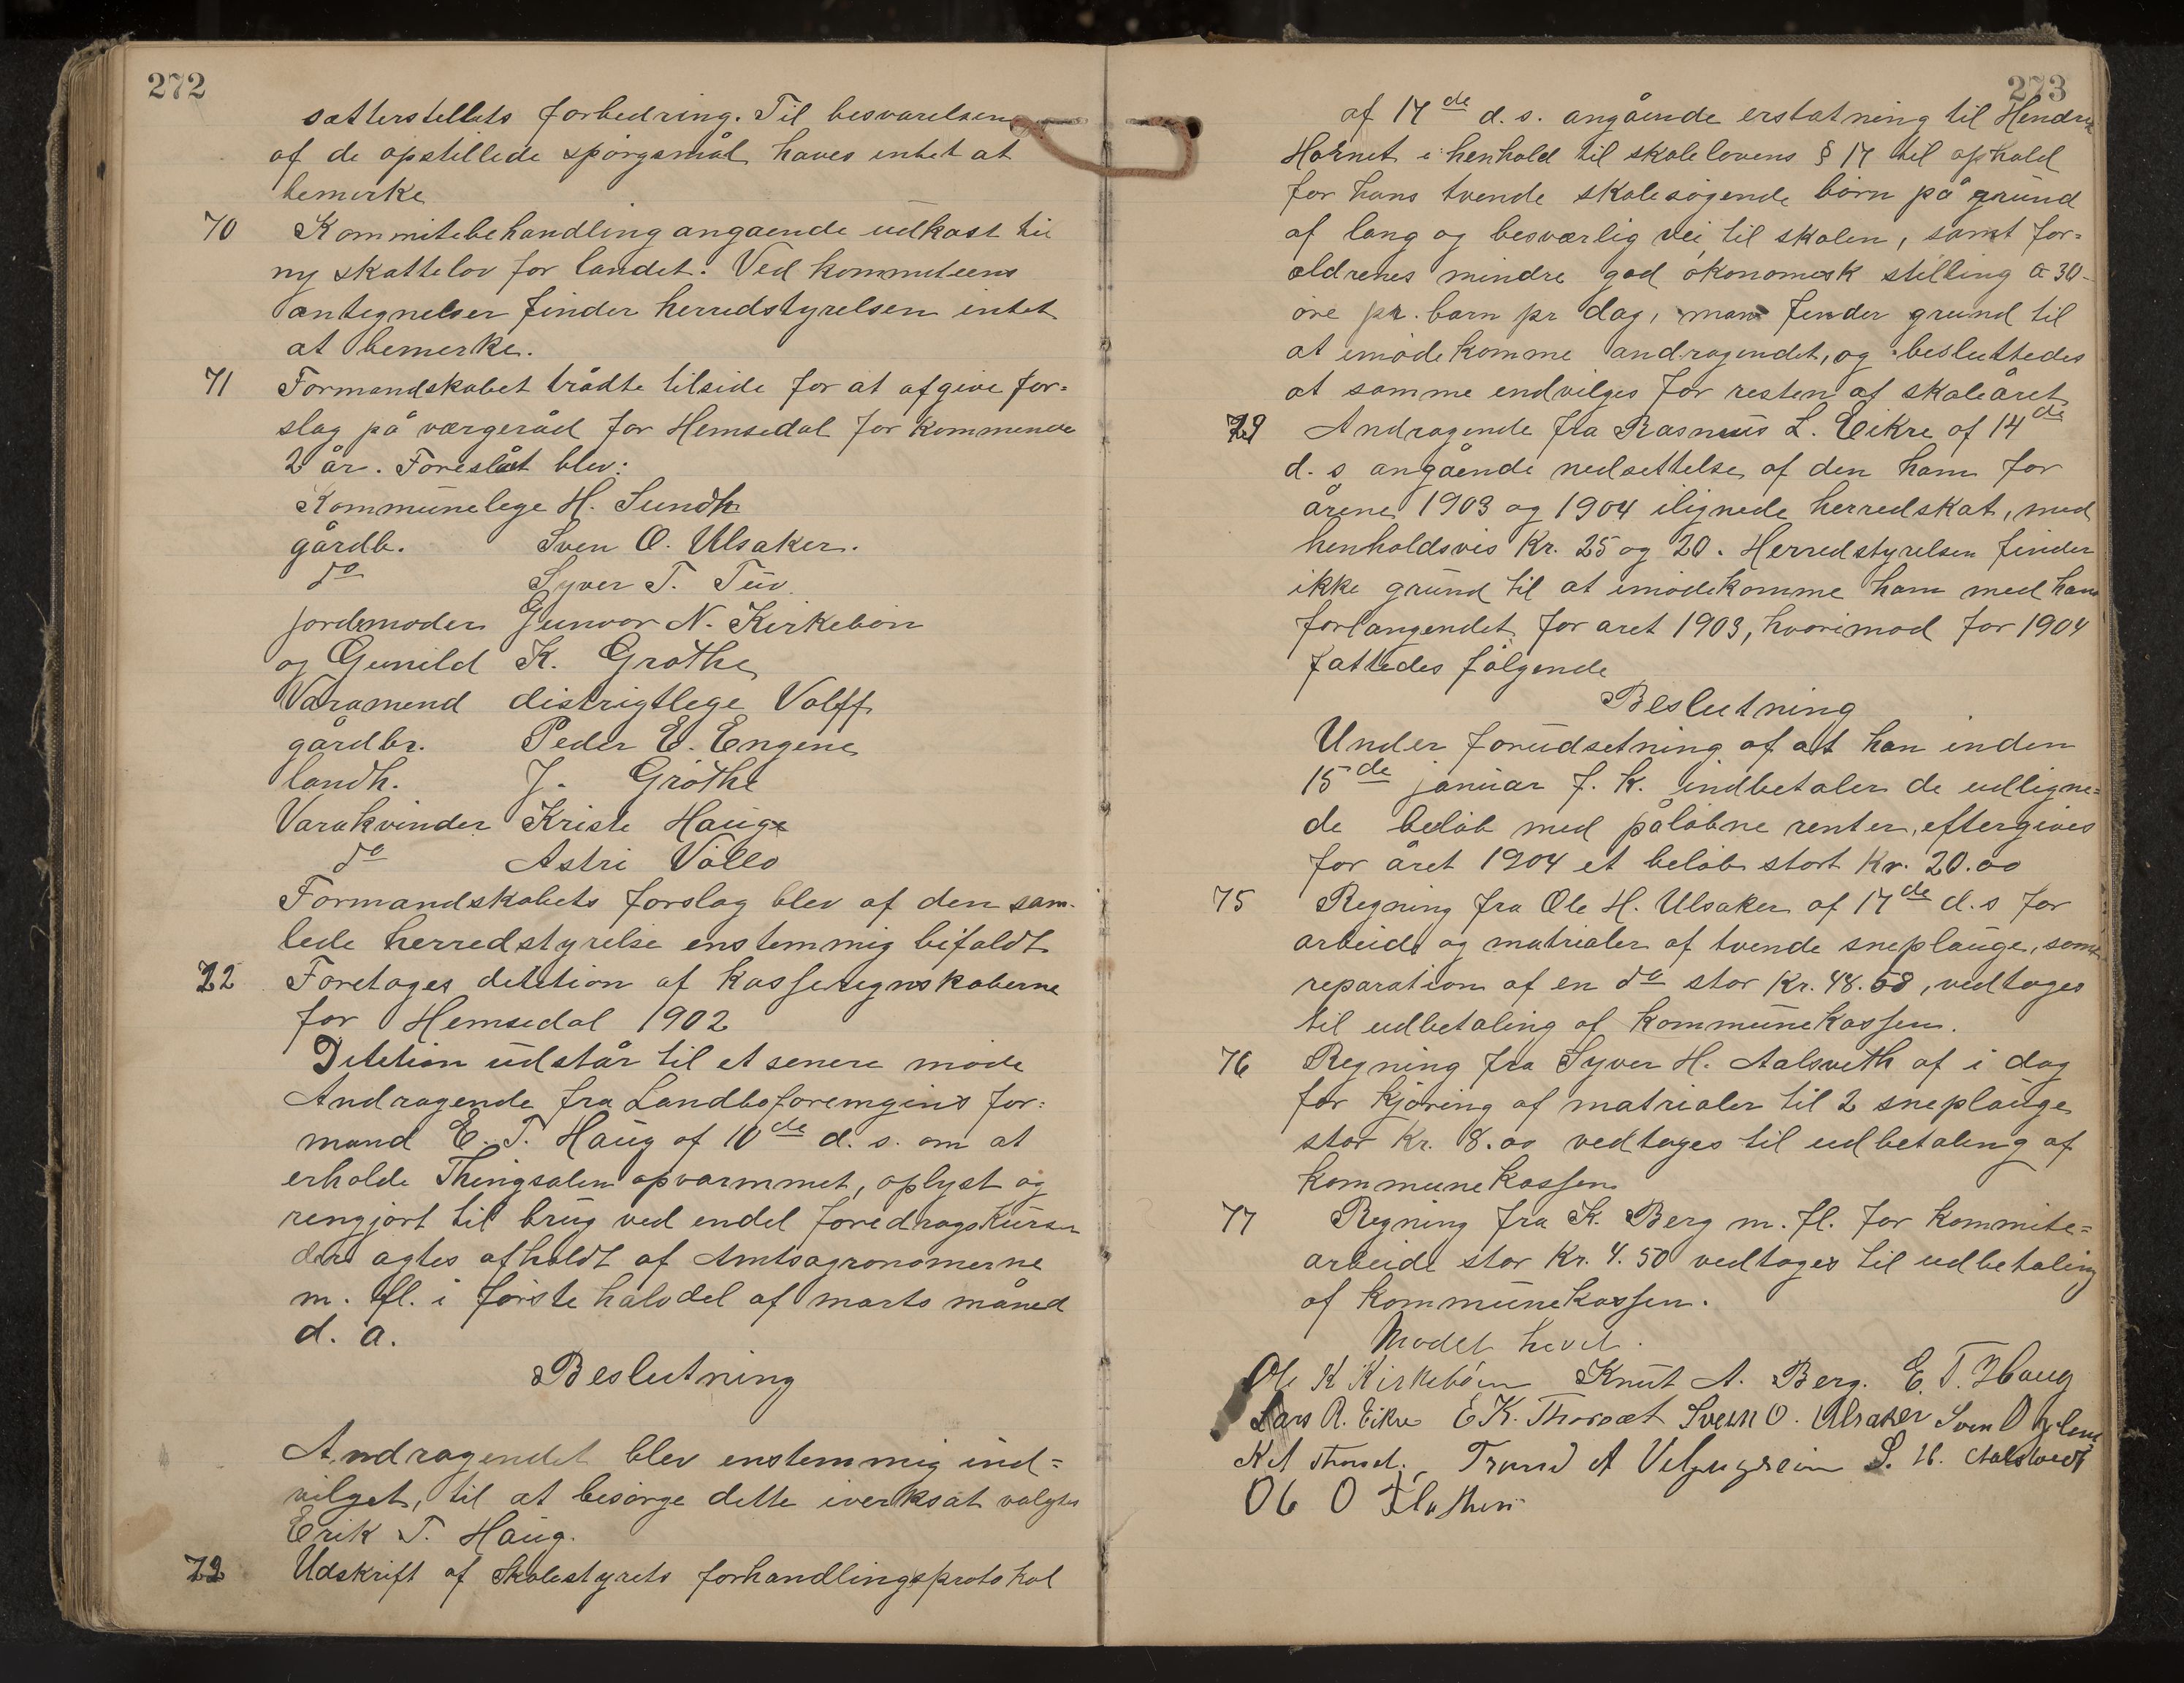 272
satterstellets forbedring. Til besvarelsen
af de opstillede spörgsmål haves intet at
bemerke
70 Kommitebehandling angaaende udkast til
ny skattelov for landet. Ved kommiteens
antegnelser finder herredstyrelsen intet
at bemerke.
71 Formandskabet trådte tilside for at afgive for-
slag på værgeråd for Hemsedal for kommende
2 år. Foreslåt blev:
Kommunelege H. Sundh
gårdb. Sven O. Ulsaker.
do Syver T. Tuv
jordemoder Gunvor N. Kirkebön
og Gunild K. Gröthe
Varamend distrigtlege Volff
gårdbr. Peder E. Engene
landh. J. Gröthe
Varakvinder Kriste Hauge
do Astri Vøllo
Formandskabets forslag blev af den sam-
lede herredstyrelse enstemmig bifaldt
72 Foretages detition af kasseregnskaberne
for Hemsedal 1902
Detition udstår til et senere möde
Andragende fra Landboforeningens for-
mand E. T. Haug af 10de d. s. om at
erholde Thingsalen opvarmmet, oplyst og
rengjort til brug ved endel foredragskurser
der agtes afholdt af Amtsagronomerne
m. fl. i förste halvdel af marts måned
d. a.
Beslutning
Andragendet blev enstemmig ind-
vilget, til at besörge dette iverksat valgtes
Erik T. Haug.
Udskrift af Skolestyrets forhandlingsprotokol
273
af 17de d. s. angående erstatning til Hendrik
Hornet i henhold til skolelovens § 17 til ophold
for hans tvende skolesögende börn på grund
af lang og besværlig vei til skolen, samt for-
ældrenes mindre god ökonomisk stilling a 30-
öre pr. barn pr dag, man finder grund til
at imödekomme andragendet, og besluttedes
at samme endvilges for resten af skoleåret
Andragende fra Rasmus L. Eikre af 14de
d. s angående nedsettelse af den ham for
årene 1903 og 1904 ilignede herredskat, med
henholdsvis Kr. 25 og 20. Herredstyrelsen finder
ikke grund til at imödekomme ham med hans
forlangendet for aret 1903, hvorimod for 1904
fattedes fölgende
Beslutning
Under forudsetning af at han inden
15de januar f. k. indbetaler de udligne-
de belöb med pålöbne renter, eftergives
for året 1904 et belöb stort Kr. 20.00
75 Regning fra Ole H. Ulsaker af 17de d. s for
arbeide og matrialer af tvende sneplauge, samt
reparation af en do stor Kr. 48.58, vedtages
til udbetaling af kommunekassen.
76 Regning fra Syver H. Aalsveth af i dag
for kjöring af matrialer til 2 sneplauge
stor Kr. 8.00 vedtages til udbetaling af
kommunekassen
77 Regning fra K. Berg m. fl. for kommite-
arbeide stor Kr. 4.50 vedtages til udbetaling
af kommunekassen.
Mödet hevet.
Ole K Kirkebøen Knut A. Berg. E. T. Haug
Lars R. Eikre E K. Thorset Svein O. Ulsaker Sven O
K A Trond A S. H. Aalsvedt
Ole O Flathen